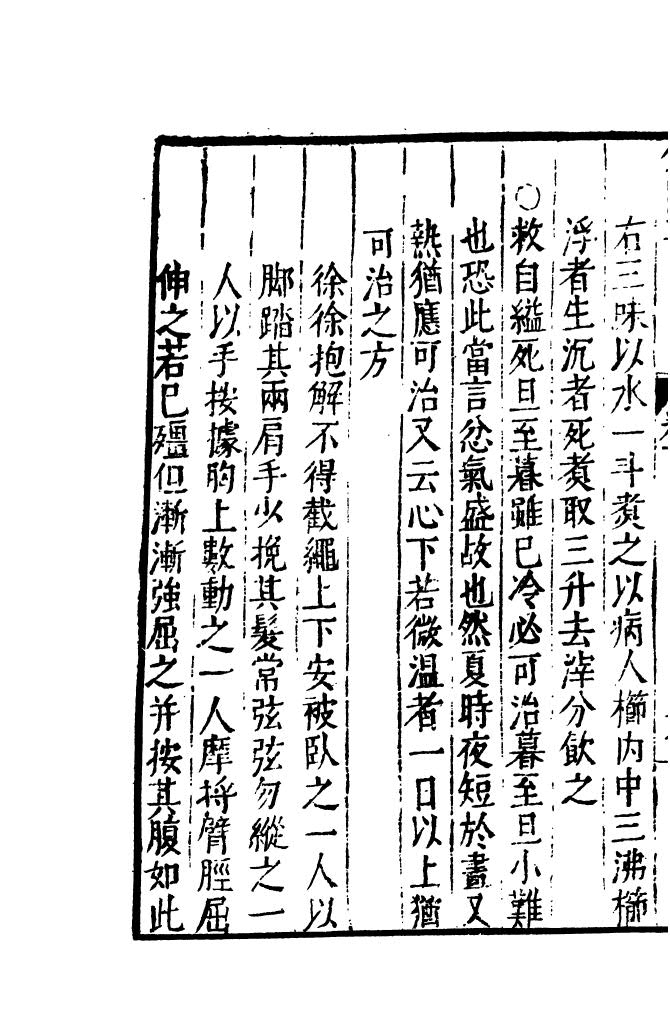 右三味以水一斗煑之以病人櫛內中三沸櫛
浮者生沉者死煑取三升去滓分飲之
○救自縊死旦至暮雖已冷必可治暮至旦小難
也恐此當言忿氣盛故也然夏時夜短於晝又
熱猶應可治又云心下若微温者一日以上猶
可治之方
徐徐抱解不得截繩上下安被臥之一人以
脚踏其兩肩手少挽其髮常弦弦勿縱之一
人以手按據胸上數動之一人摩捋臂脛屈
伸之若已殭但漸漸強屈之并按其腹如此